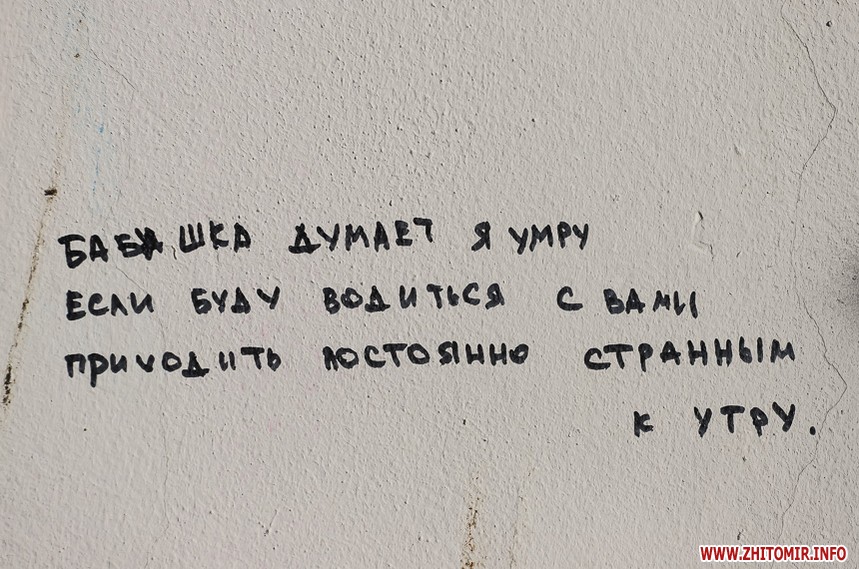 БАБУШКА ДУМАЕТ Я УМРУ
ЕСЛИ БУДУ ВОДИТЬСЯ С ВАМИ
ПРИХОДИТЬ ПОСТОЯННО СТРАННЫМ
К УТРУ.
WWW.ZHITOMIR.INFO